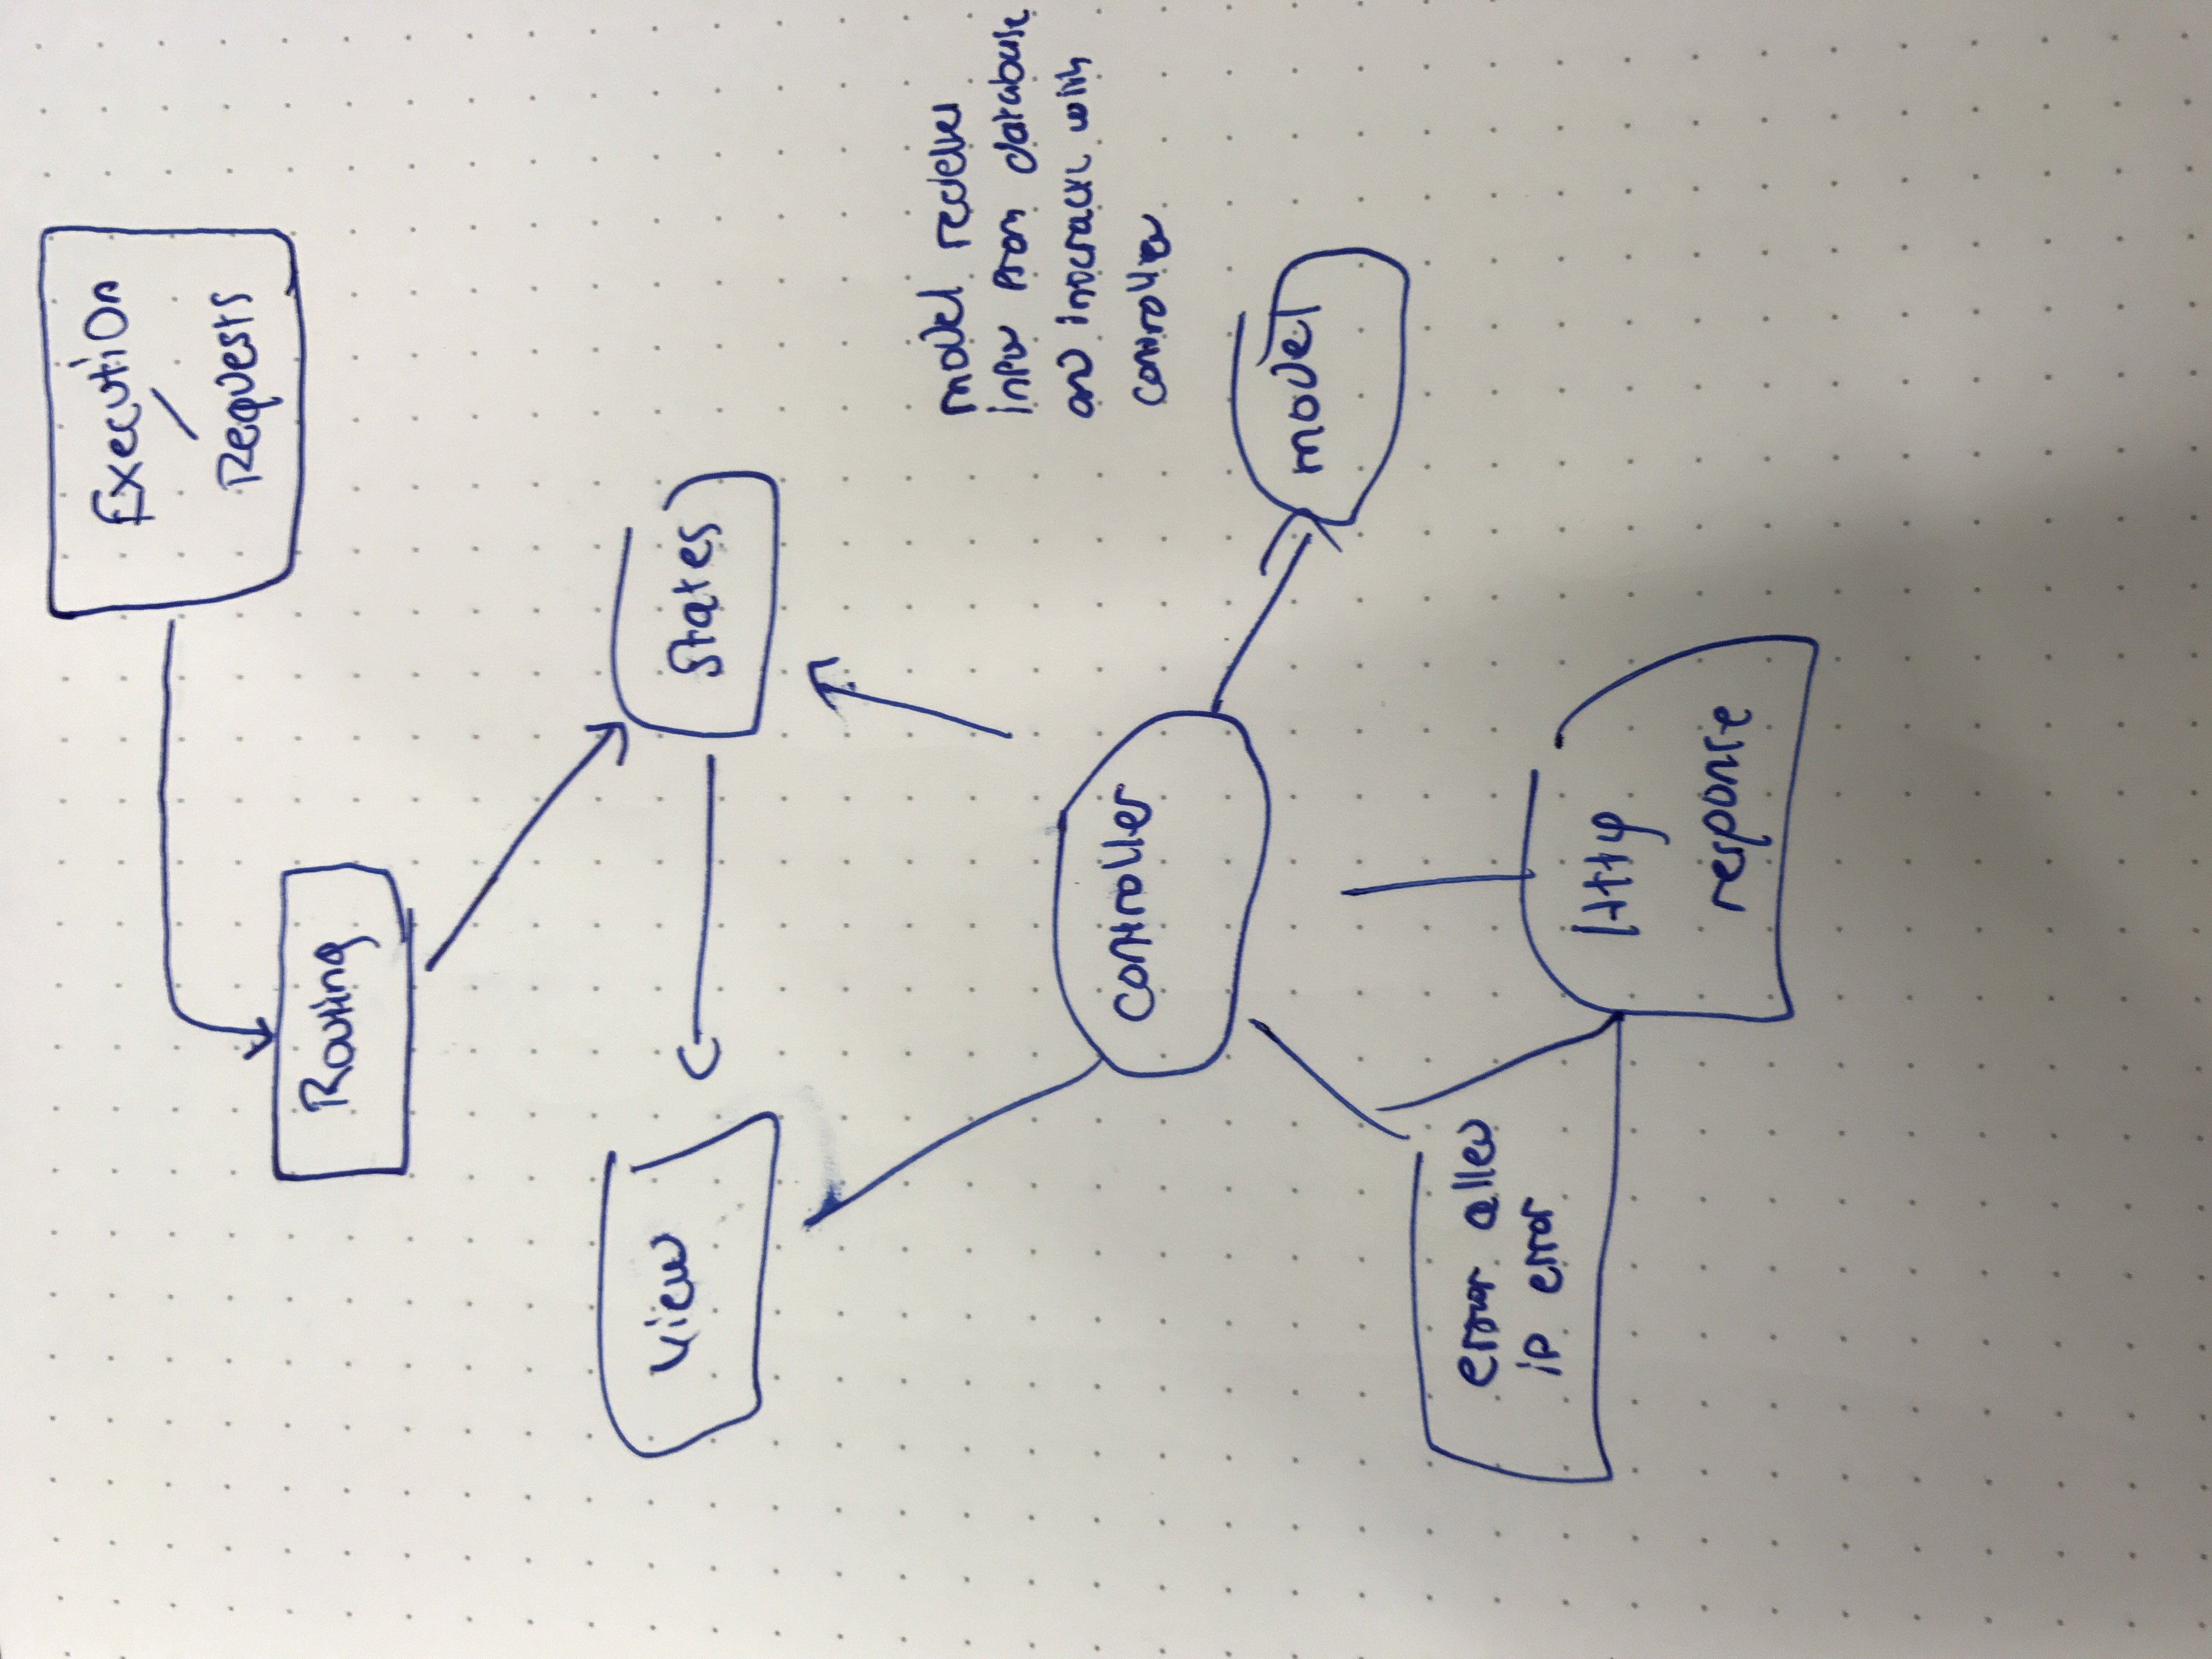 Execution
/
Requests
Routing
View
States
model
info from database
and with
controller
controller
model
error
if error
Http
response